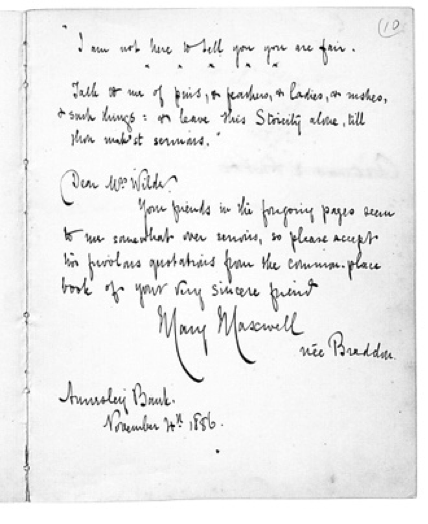 10
"I am not here to tell you you are fair.
" " " " "
Talk to me of pins, & feathers, & ladies, & rushes,
& such things : & leave this Stoicity alone, till
thou mak'st sermons."
Dear Mrs Wilde,
Your friends in the foregoing pages seem
to me somewhat over serious, so please accept
two frivolous quotations from the common-place
book of your very sincere friend
Mary Maxwell
née Braddon.
Annesley Bank.
November 4th 1886.